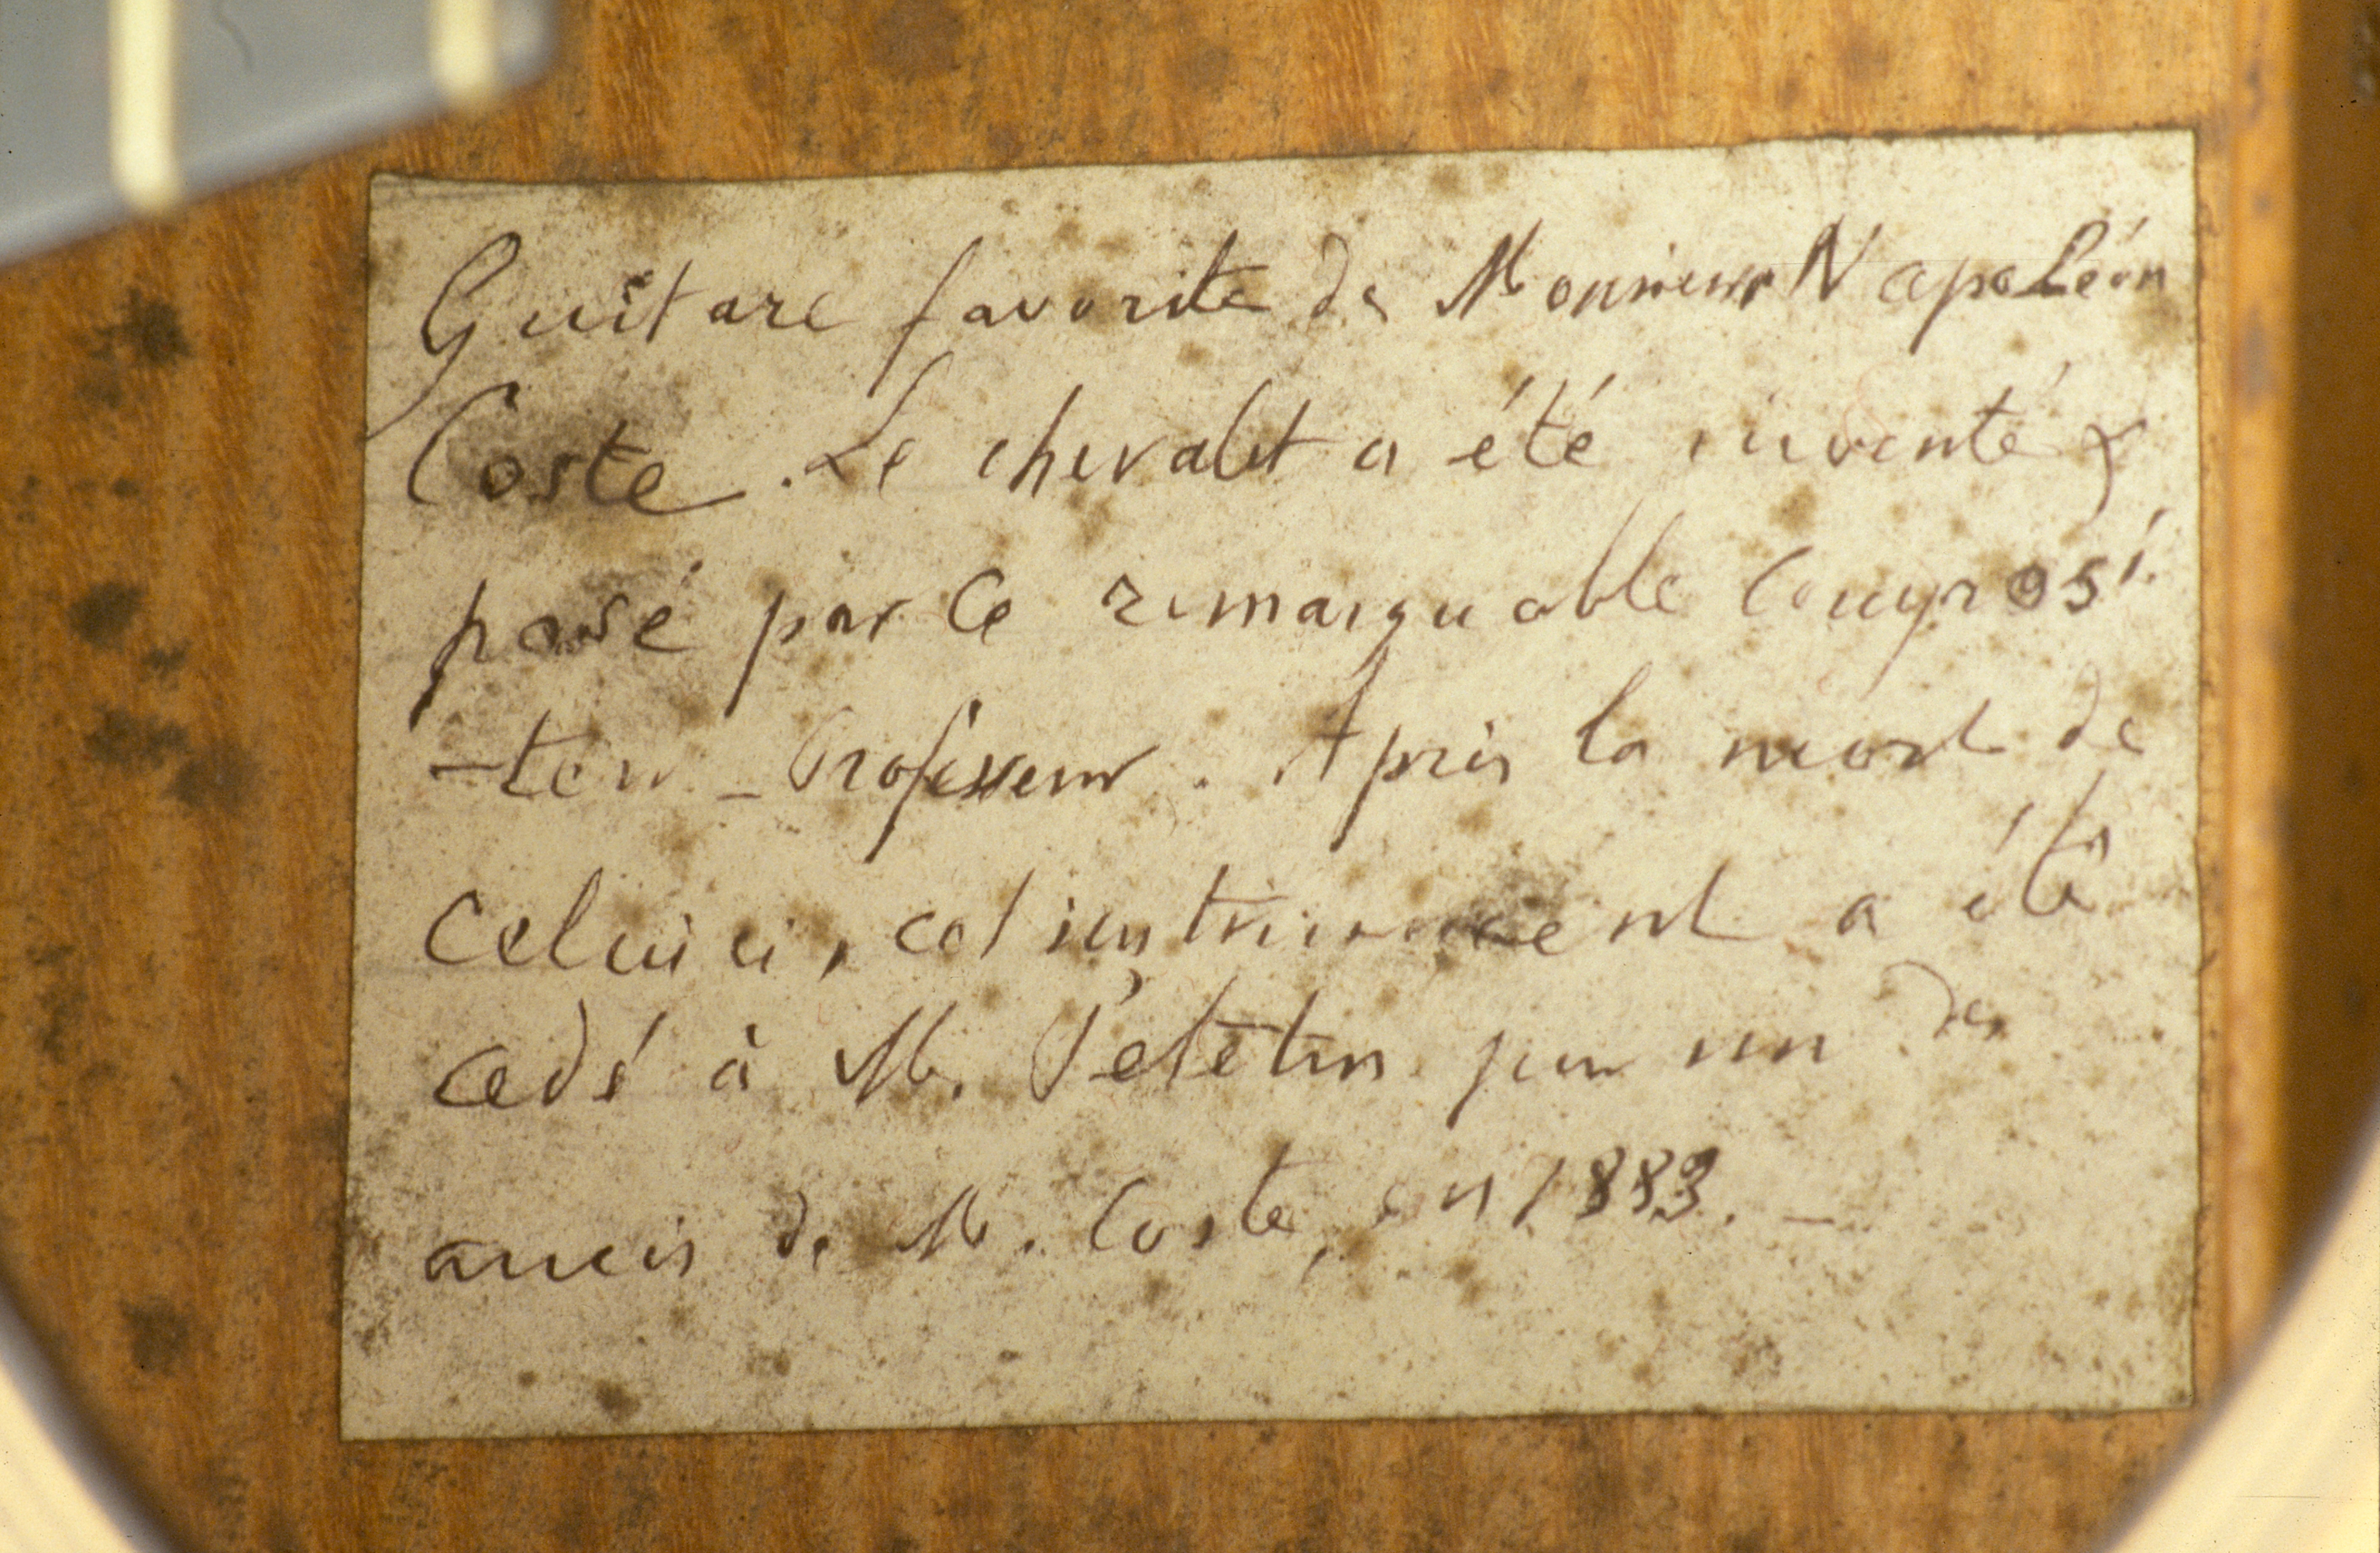 Guitare favorite de Monsieur Napoléon
Coste. Le chevalet a été inventé &
posé par ce remarquable composi-
-teur-Professeur. Après la mort de
celui ci, cet instrument a été
cédé à M. Petetin par un des
amis de M. Coste, en 1883. -